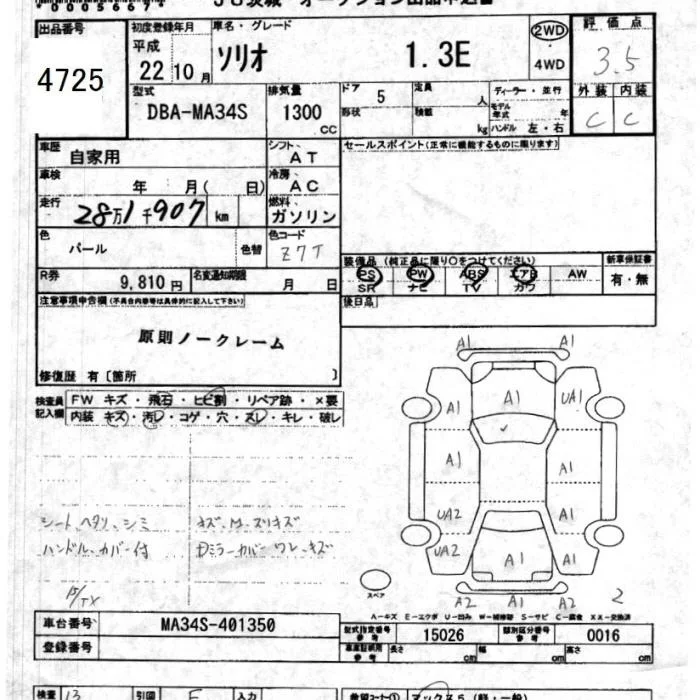 JU茨城 オークション出品申込書
出品番号
4725
初度登録年月
平成
22 10 月
車名・グレード
ソリオ 1.3E
2WD
・
4WD
評価点
3.5
外装 内装
C C
型式
DBA-MA34S
排気量
1300
CC
ドア 5
形状
定員 人
積載 kg
ディーラー・並行
モデル年式 年
ハンドル 左・右
車歴
自家用
シフト
AT
セールスポイント(正常に機能するものに限ります)
車検
年 月( 日)
冷房
AC
走行
28万1千907 km
燃料
ガソリン
色
パール
色替
色コード
Z7T
R券
9,810円
名変通知期限
月 日
装備品(純正品に限り○をつけてください)
PS PW ABS エアB AW
SR ナビ TV カワ
新車保証書
有・無
後日品
注意事項申告欄(不具合内容等は具体的に記入して下さい)
原則ノークレーム
修復歴 有〔箇所 〕
検査員記入欄
FW キズ・飛石・ヒビ割・リペア跡・×要
内装 キズ・汚レ・コゲ・穴・スレ・キレ・破レ
シートヘタリ、シミ
ハンドル、カバー付
キズ、M、スリキズ
Dミラーカバー ワレ、キズ
A1 A1
A1 A1 UA1
A1 A1
UA2 A1
UA2 A1 A1
A2 A1 A2
スペア
2
A-キズ E-エクボ U-凹み W-補修跡 S-サビ C-腐食 XX-交換済
車台番号
MA34S-401350
登録番号
型式指定番号
参考
15026
類別区分番号
参考
0016
車庫証明用
参考
長さ cm 幅 cm 高さ cm
検査 13 引図 F 入力
希望コーナー① マックス5(軽・一般)